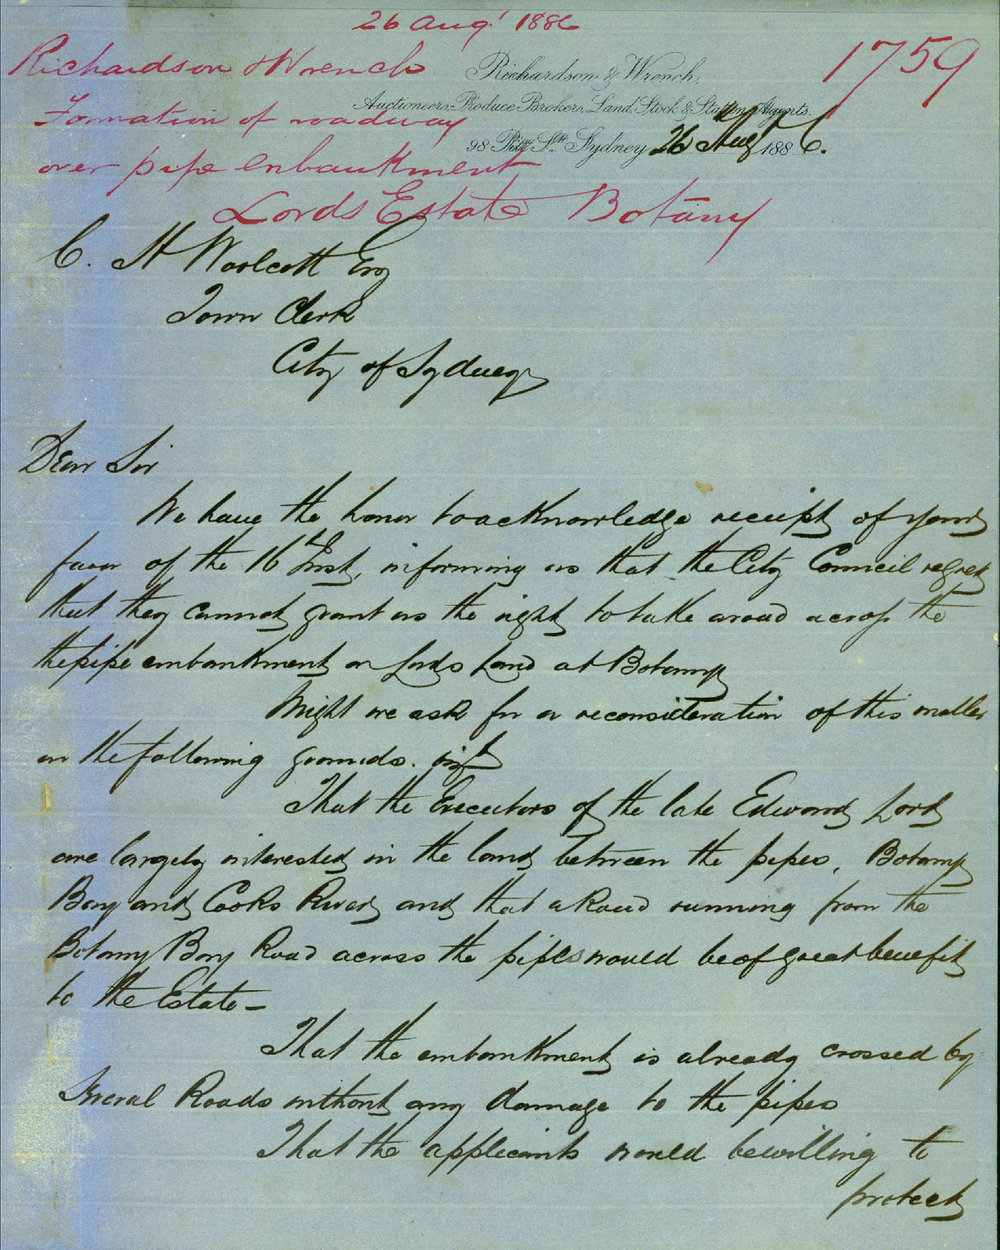 26 Aug! 1886
1759
Richardson & Wrench
Formation of roadway
over pipe enbankment
Lords Estate Botany
Richardson & Wrench,
Auctioneers, Produce Brokers, Land, Stock & Station Agents.
98 Pitt St. Sydney 26 Augt 1886.
C. H Woolcott Esq
Town Clerk
City of Sydney
Dear Sir
We have the honor to acknowledge receipt of yours
favor of the 16th Inst, informing us that the City Council regret
that they cannot grant us the right to take a road across the
the pipe embankment on Lords Land at Botany
Might we ask for a reconsideration of this matter
on the following grounds.
That the Executors of the late Edward Lord
are largely interested in the land between the pipes, Botany
Bay and Cooks River, and that a Road running from the
Botany Bay Road across the pipes would be of great benefit
to the Estate -
That the embankment is already crossed by
Several Roads without any damage to the pipes
That the applicants would be willing to
protect